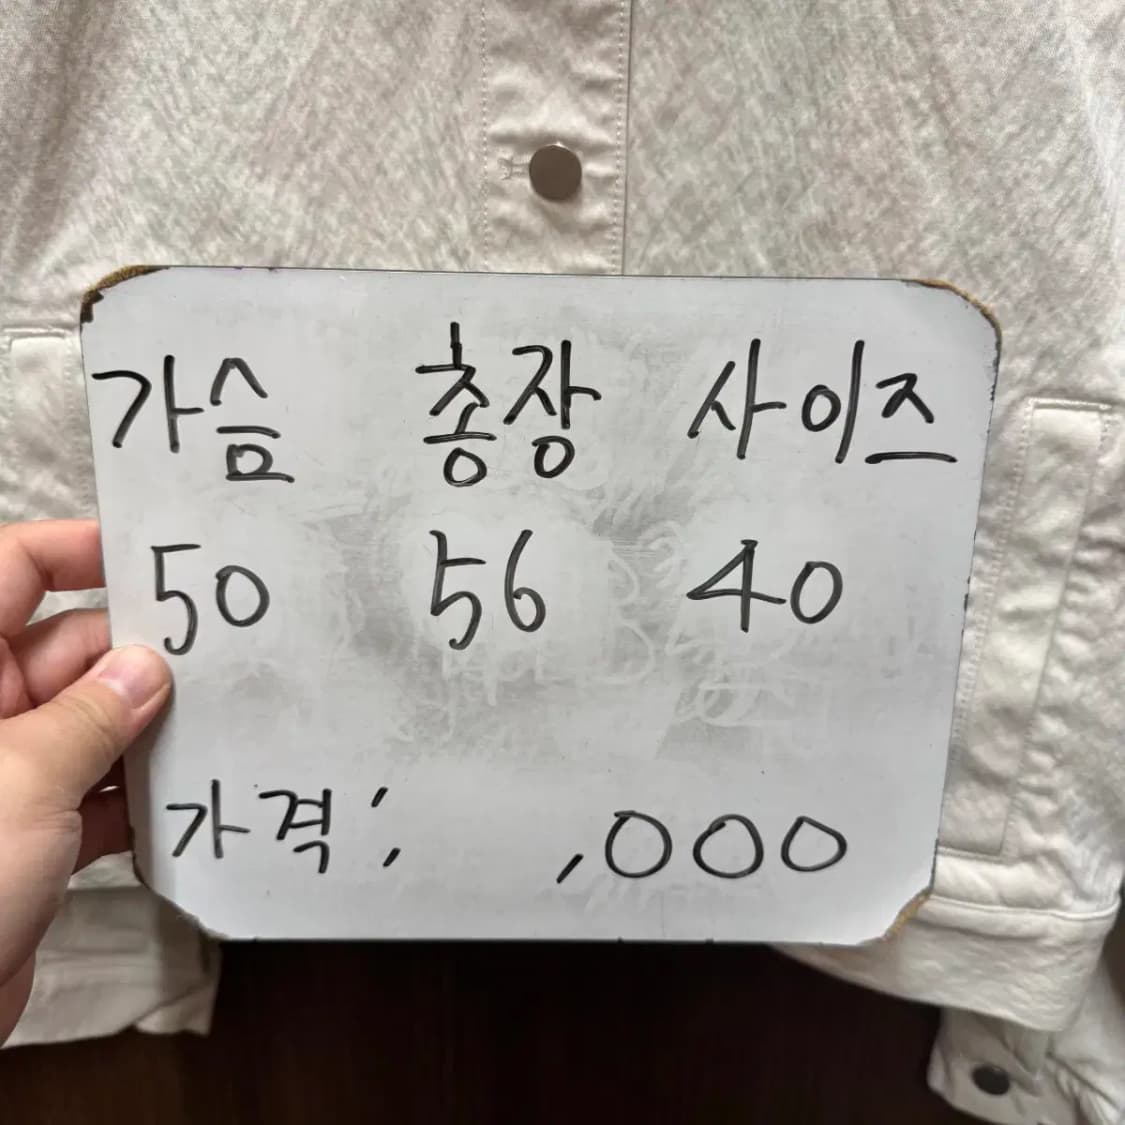 가슴 총장 사이즈
50 56 40
가격: ,000